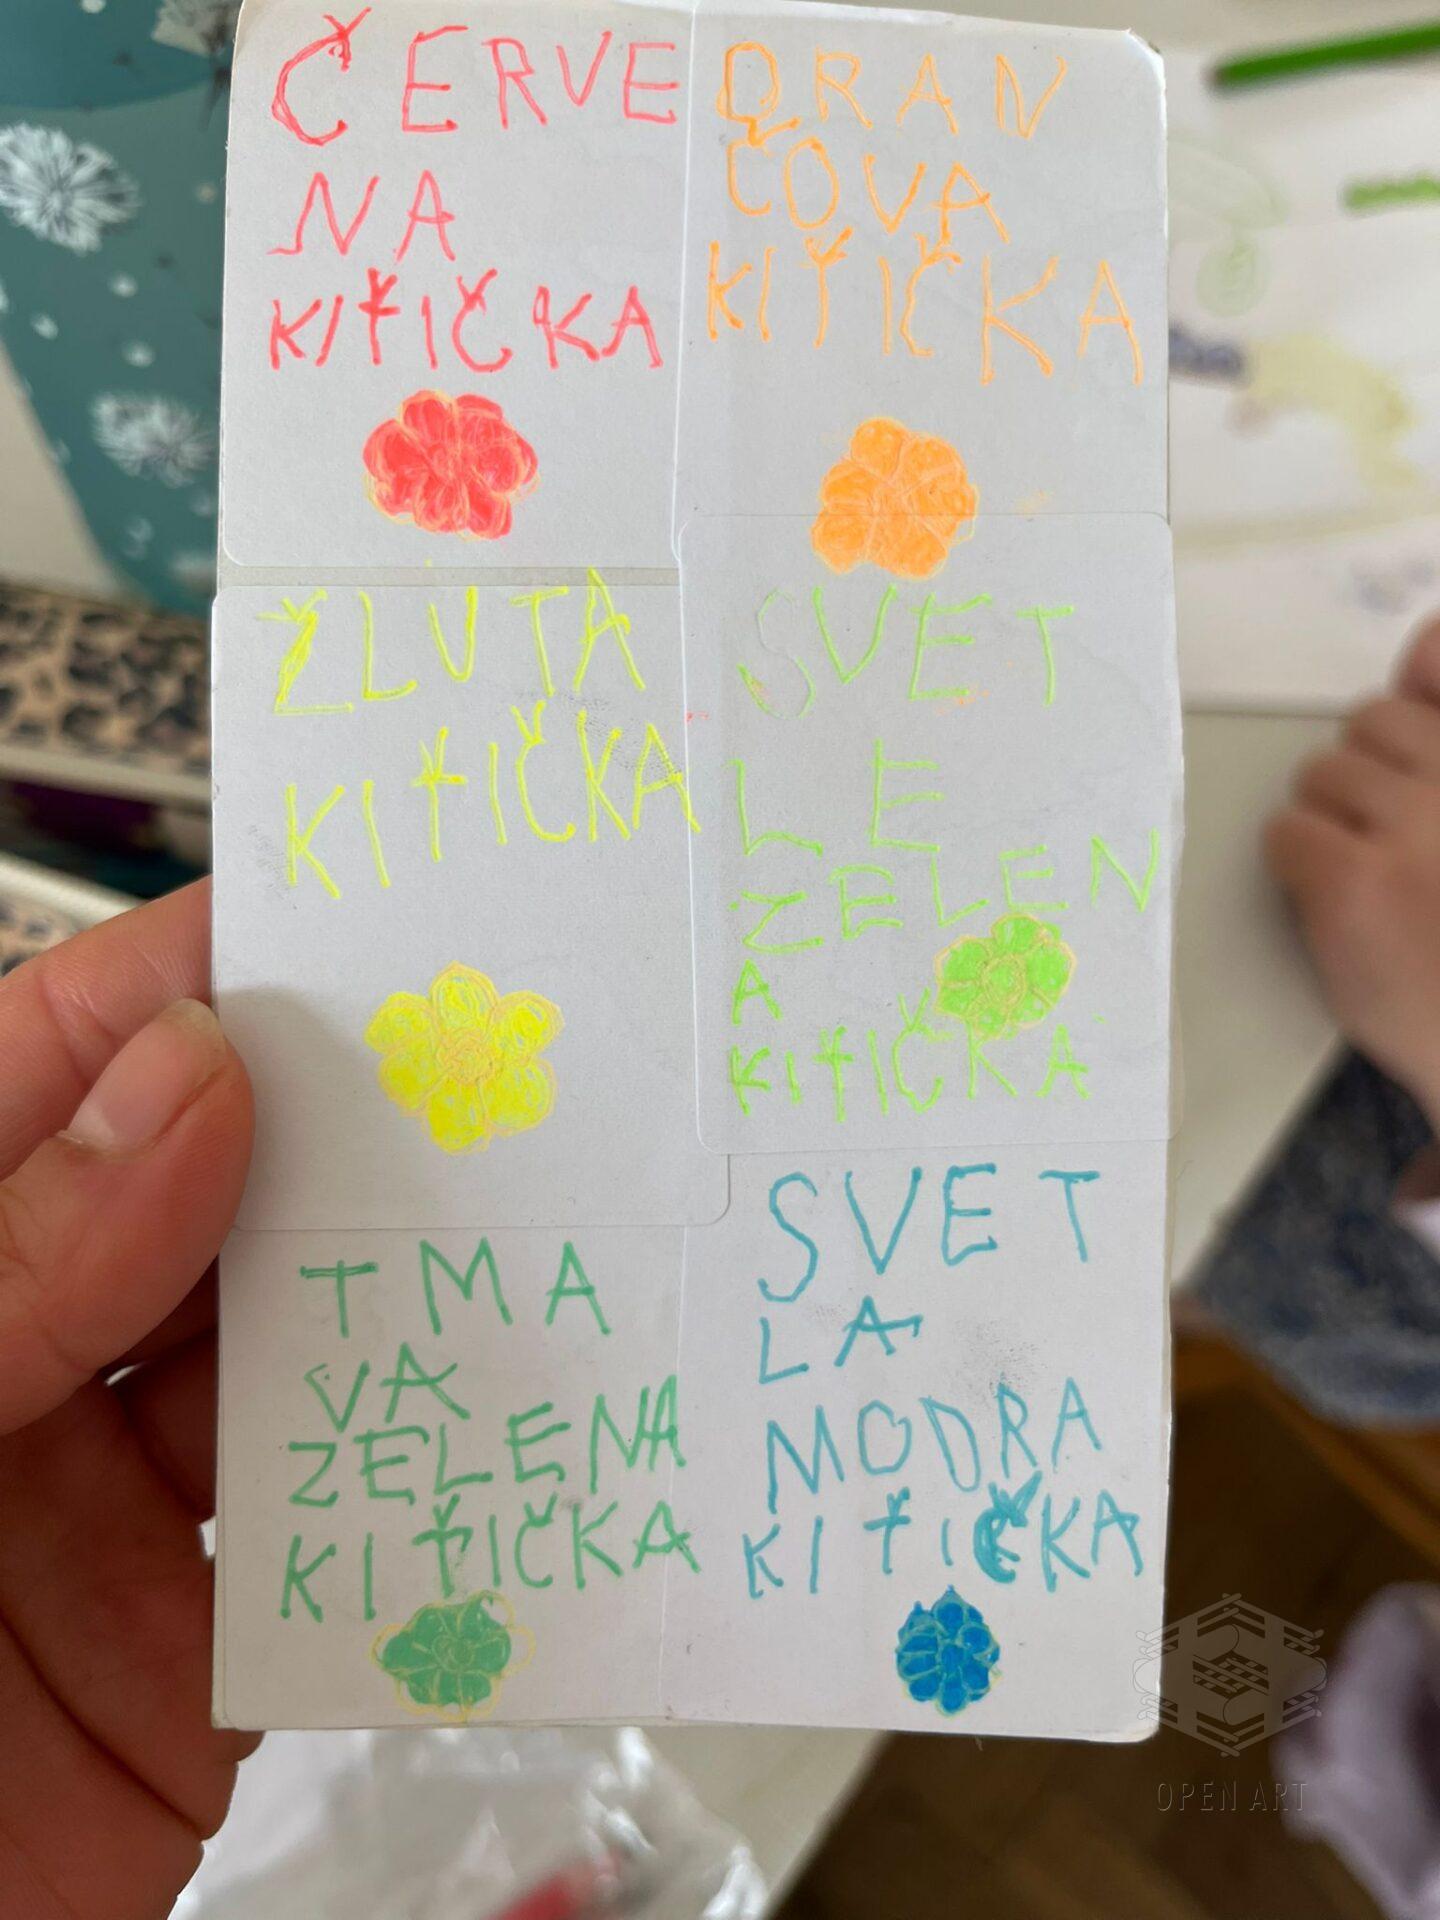 ČERVE
NA
KIŤIČKA
ORAN
ČOVA
KIŤIČKA
ŽLUTA
KIŤIČKA
SVET
LE
ZELEN
A
KIŤIČKA
TMA
VA
ZELENA
KIŤIČKA
SVET
LA
MODRA
KIŤIČKA
OPEN ART